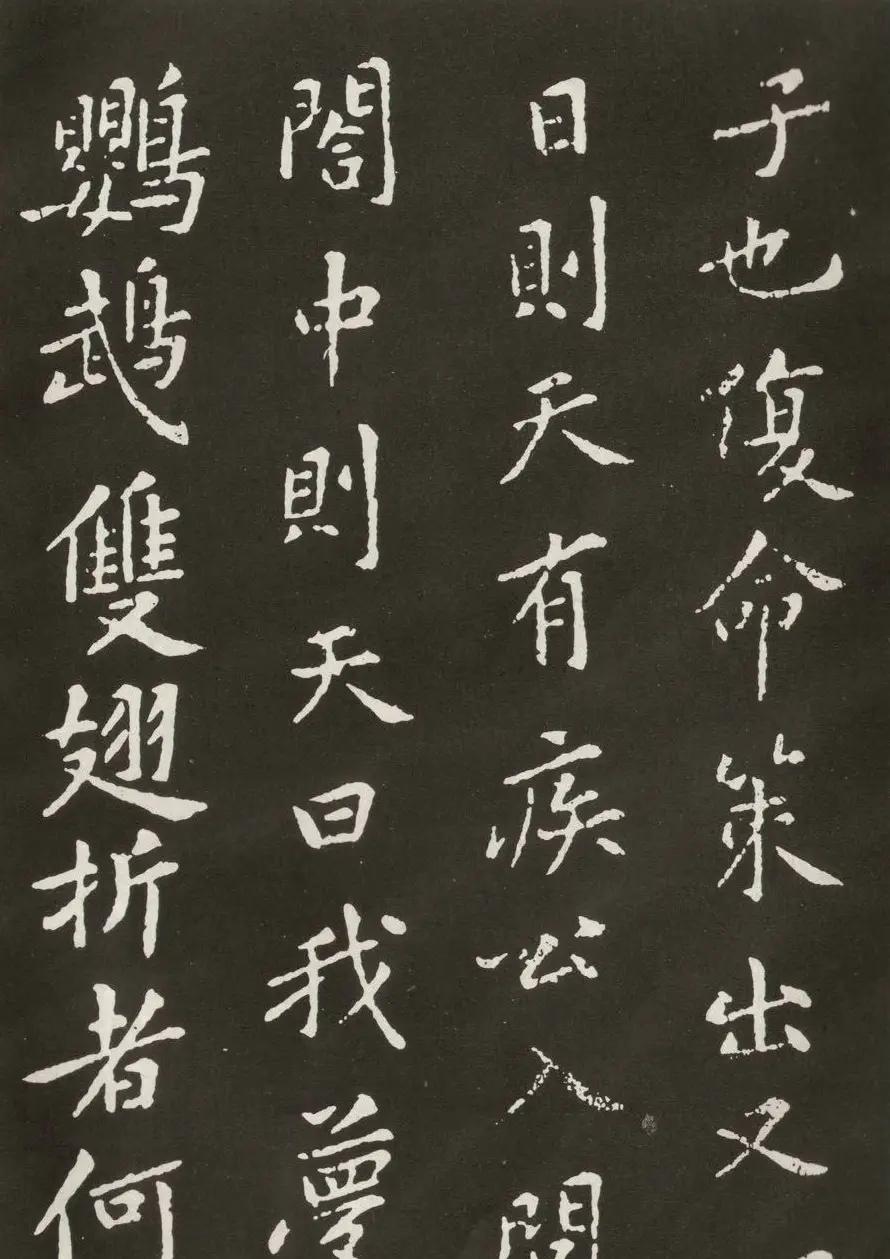 子也復命策出又
日則天有疾公入問
閤中則天曰我夢
鸚鵡雙翅折者何